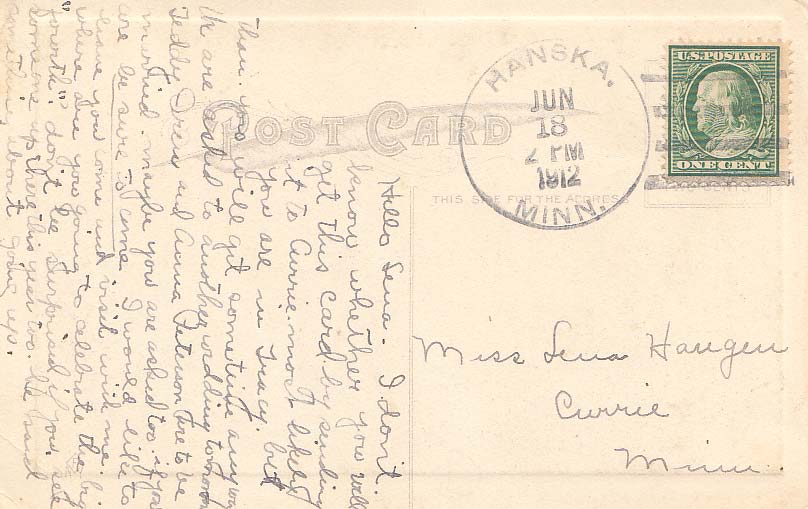 POST CARD
THIS SIDE FOR THE ADDRESS
HANSKA.
JUN
18
2 PM
1912
MINN.
U.S. POSTAGE
ONE CENT
Miss Lena Haugen
Currie
Minn.
Hello Lena. I don't
know whether you will
get this card by sending
it to Currie. most likely
you are in Tracy. but
then you will get sometime anyway
We are asked to another wedding tomorrow
Teddy Drew and Anna Peterson are to be
married. maybe you are asked too if you
are be sure to come. I would like to
have you come and visit with me.
where are you going to celebrate the big
"fourth" don't be surprised if you see
someone up there this year too. He said
something about going up.